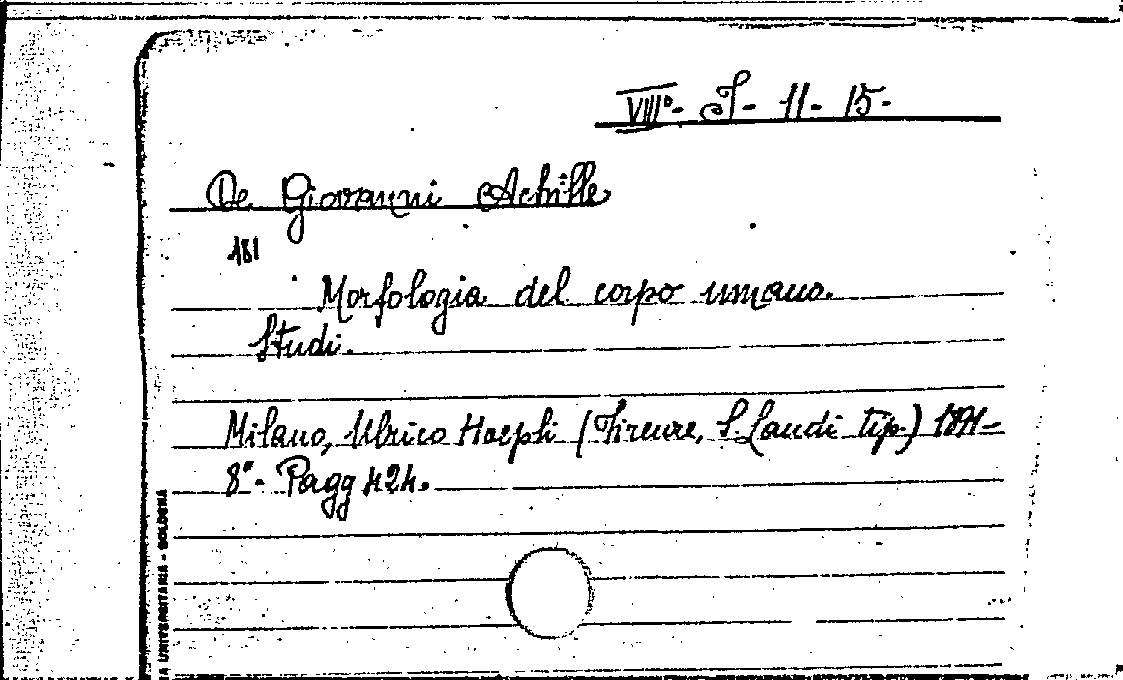 VIII°- J- 11- 15-
De Giovanni Achille
181
Morfologia del corpo umano.
Studi.
Milano, Ulrico Hoepli (Firenze, S. Landi tip.) 1891-
8°- Pagg 424.
A UNIVERSITARIA - BOLOGNA